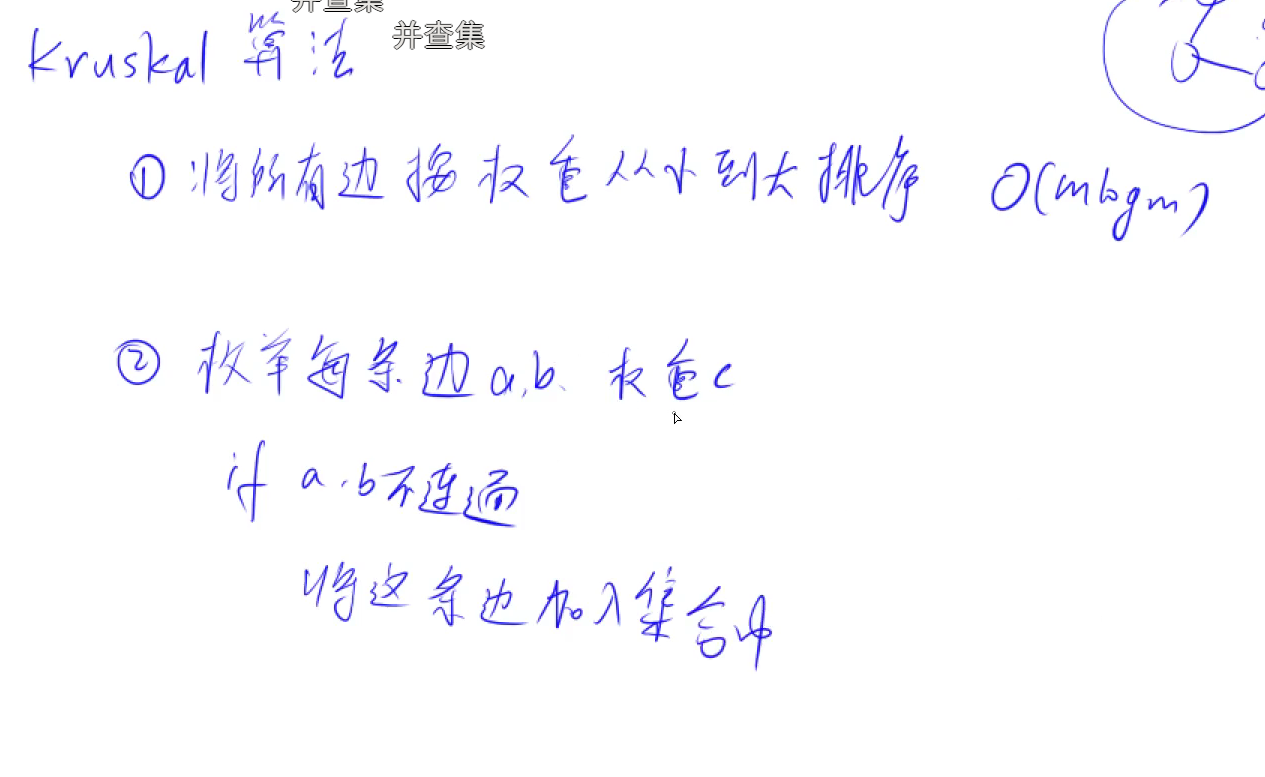 并查集
Kruskal 算法 并查集
① 将所有边按权重从小到大排序 O(mlogm)
② 枚举每条边a,b、权重c
if a,b不连通
将这条边加入集合中